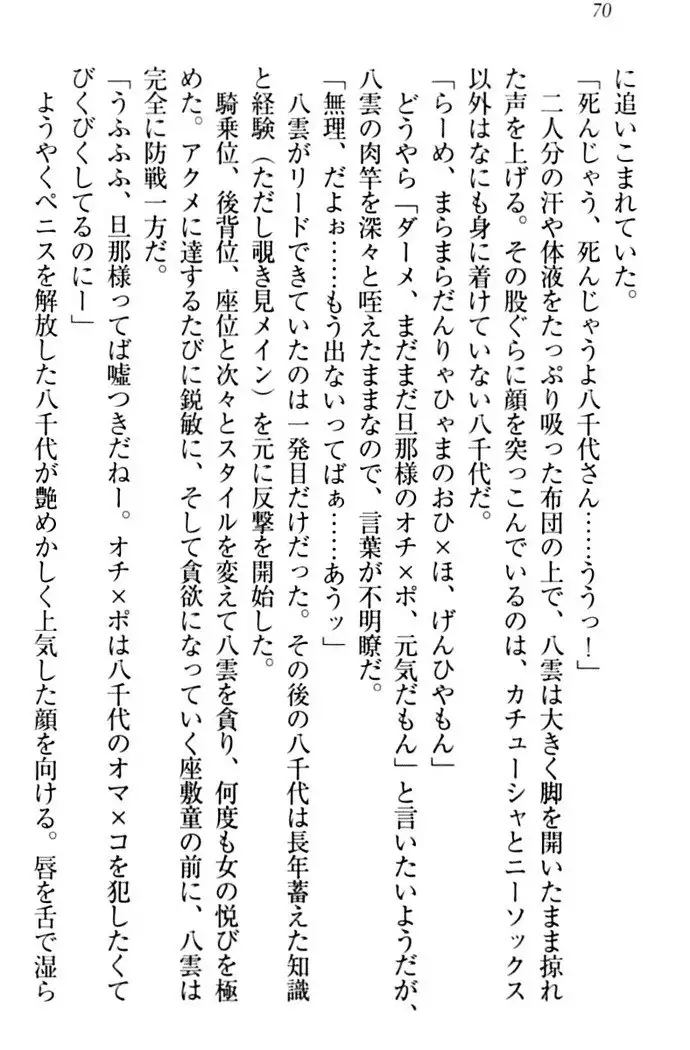 70
に追いこまれていた。
「死んじゃう、死んじゃうよ八千代さん……ううっ！」
二人分の汗や体液をたっぷり吸った布団の上で、八雲は大きく脚を開いたまま掠れ
た声を上げる。その股ぐらに顔を突っこんでいるのは、カチューシャとニーソックス
以外はなにも身に着けていない八千代だ。
「らーめ、まらまらだんりゃひゃまのおひ×ほ、げんひやもん」
どうやら「ダーメ、まだまだ旦那様のオチ×ポ、元気だもん」と言いたいようだが、
八雲の肉竿を深々と咥えたままなので、言葉が不明瞭だ。
「無理、だよぉ……もう出ないってばぁ……あうッ」
八雲がリードできていたのは一発目だけだった。その後の八千代は長年蓄えた知識
と経験（ただし覗き見メイン）を元に反撃を開始した。
騎乗位、後背位、座位と次々とスタイルを変えて八雲を貪り、何度も女の悦びを極
めた。アクメに達するたびに鋭敏に、そして貪欲になっていく座敷童の前に、八雲は
完全に防戦一方だ。
「うふふふ、旦那様ってば嘘つきだねー。オチ×ポは八千代のオマ×コを犯したくて
びくびくしてるのにー」
ようやくペニスを解放した八千代が艶めかしく上気した顔を向ける。唇を舌で湿ら